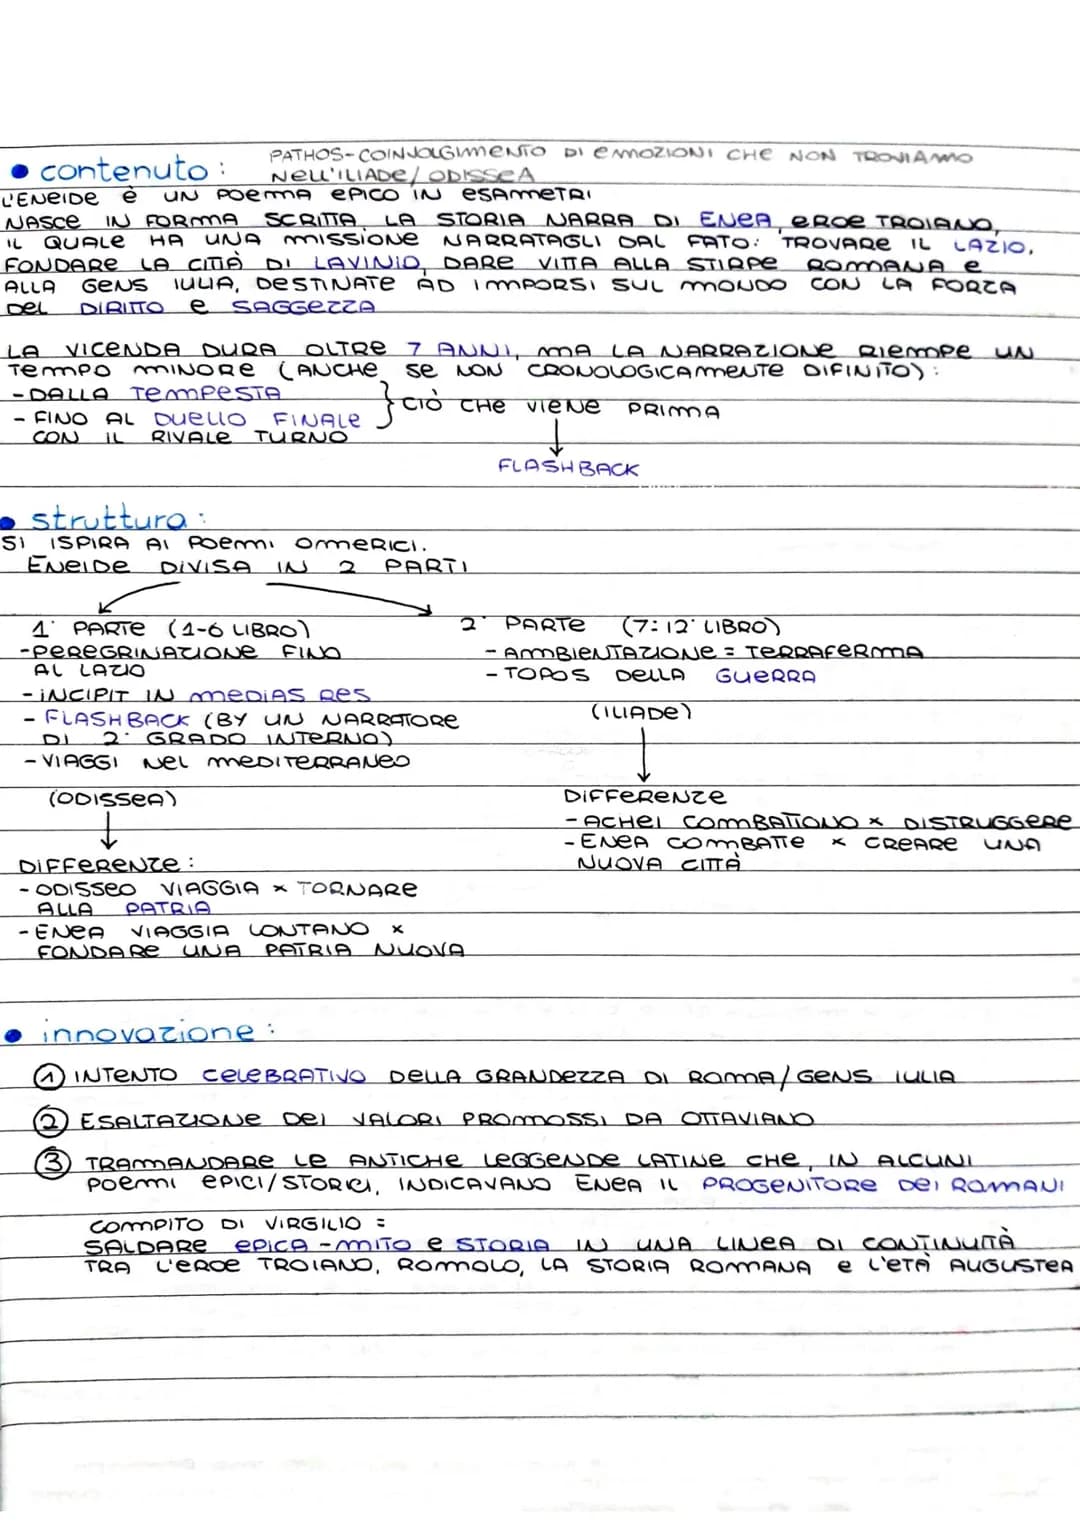 • contenuto: PATHOS-COINVOLGIMENTO DI EMOZIONI CHE NON TROVIAMO
NELL'ILIADE/ODISSEA
L'ENEIDE è UN POEMA EPICO IN ESAMETRI
NASCE IN FORMA SCRITTA, LA STORIA NARRA DI ENEA, EROE TROIANO,
IL QUALE HA UNA MISSIONE NARRATAGLI DAL FATO: TROVARE IL LAZIO,
FONDARE LA CITTÀ DI LAVINIO, DARE VITA ALLA STIRPE ROMANA e
ALLA GENS IULIA, DESTINATE AD IMPORSI SUL MONDO CON LA FORZA
DEL DIRITTO e SAGGEZZA
LA VICENDA DURA OLTRE 7 ANNI, MA LA NARRAZIONE RIEMPE UN
TEMPO MINORE (ANCHE SE NON CRONOLOGICAMENTE DIFINITO):
- DALLA TEMPESTA
- FINO AL DUELLO FINALE
CON IL RIVALE TURNO
CIÒ CHE VIENE PRIMA
↓
FLASHBACK
• struttura:
SI ISPIRA AI POEMI OMERICI.
ENEIDE DIVISA IN 2 PARTI
1° PARTE (1-6 LIBRO)
- PEREGRINAZIONE FINO
AL LAZIO
- INCIPIT IN MEDIAS RES
- FLASHBACK (BY UN NARRATORE
DI 2° GRADO INTERNO)
- VIAGGI NEL MEDITERRANEO
(ODISSEA)
↓
DIFFERENZE:
- ODISSEO VIAGGIA × TORNARE
ALLA PATRIA
- ENEA VIAGGIA LONTANO ×
FONDARE UNA PATRIA NUOVA
2° PARTE (7:12° LIBRO)
- AMBIENTAZIONE = TERRAFERMA
- TOPOS DELLA GUERRA
(ILIADE)
↓
DIFFERENZE
- ACHEI COMBATTONO × DISTRUGGERE
- ENEA COMBATTE × CREARE UNA
NUOVA CITTÀ
• innovazione:
① INTENTO CELEBRATIVO DELLA GRANDEZZA DI ROMA/GENS IULIA
② ESALTAZIONE DEI VALORI PROMOSSI DA OTTAVIANO
③ TRAMANDARE LE ANTICHE LEGGENDE LATINE CHE, IN ALCUNI
POEMI EPICI/STORICI, INDICAVANO ENEA IL PROGENITORE DEI ROMANI
COMPITO DI VIRGILIO =
SALDARE EPICA-MITO e STORIA IN UNA LINEA DI CONTINUITÀ
TRA L'EROE TROIANO, ROMOLO, LA STORIA ROMANA e L'ETÀ AUGUSTEA